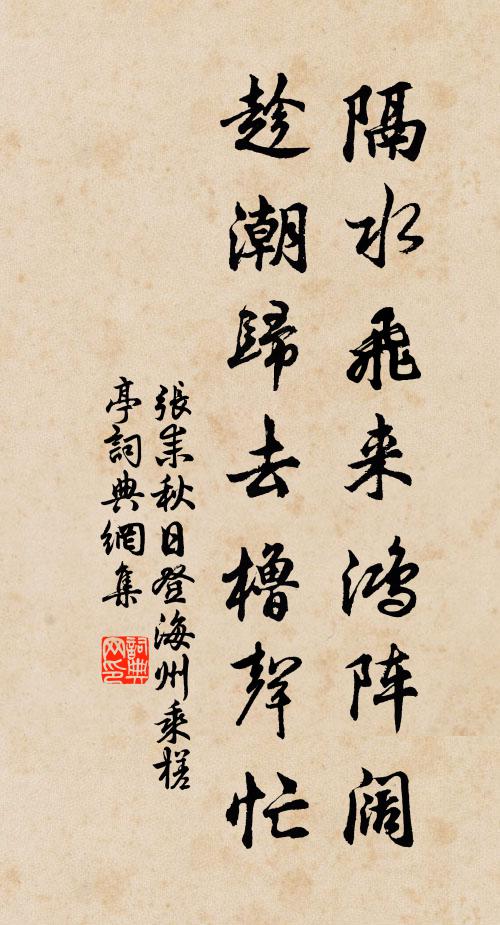 隔水飛来鴻阵阔
趁潮歸去櫓聲忙
張耒秋日登海州乘槎
亭詞典網集
詞典
网印